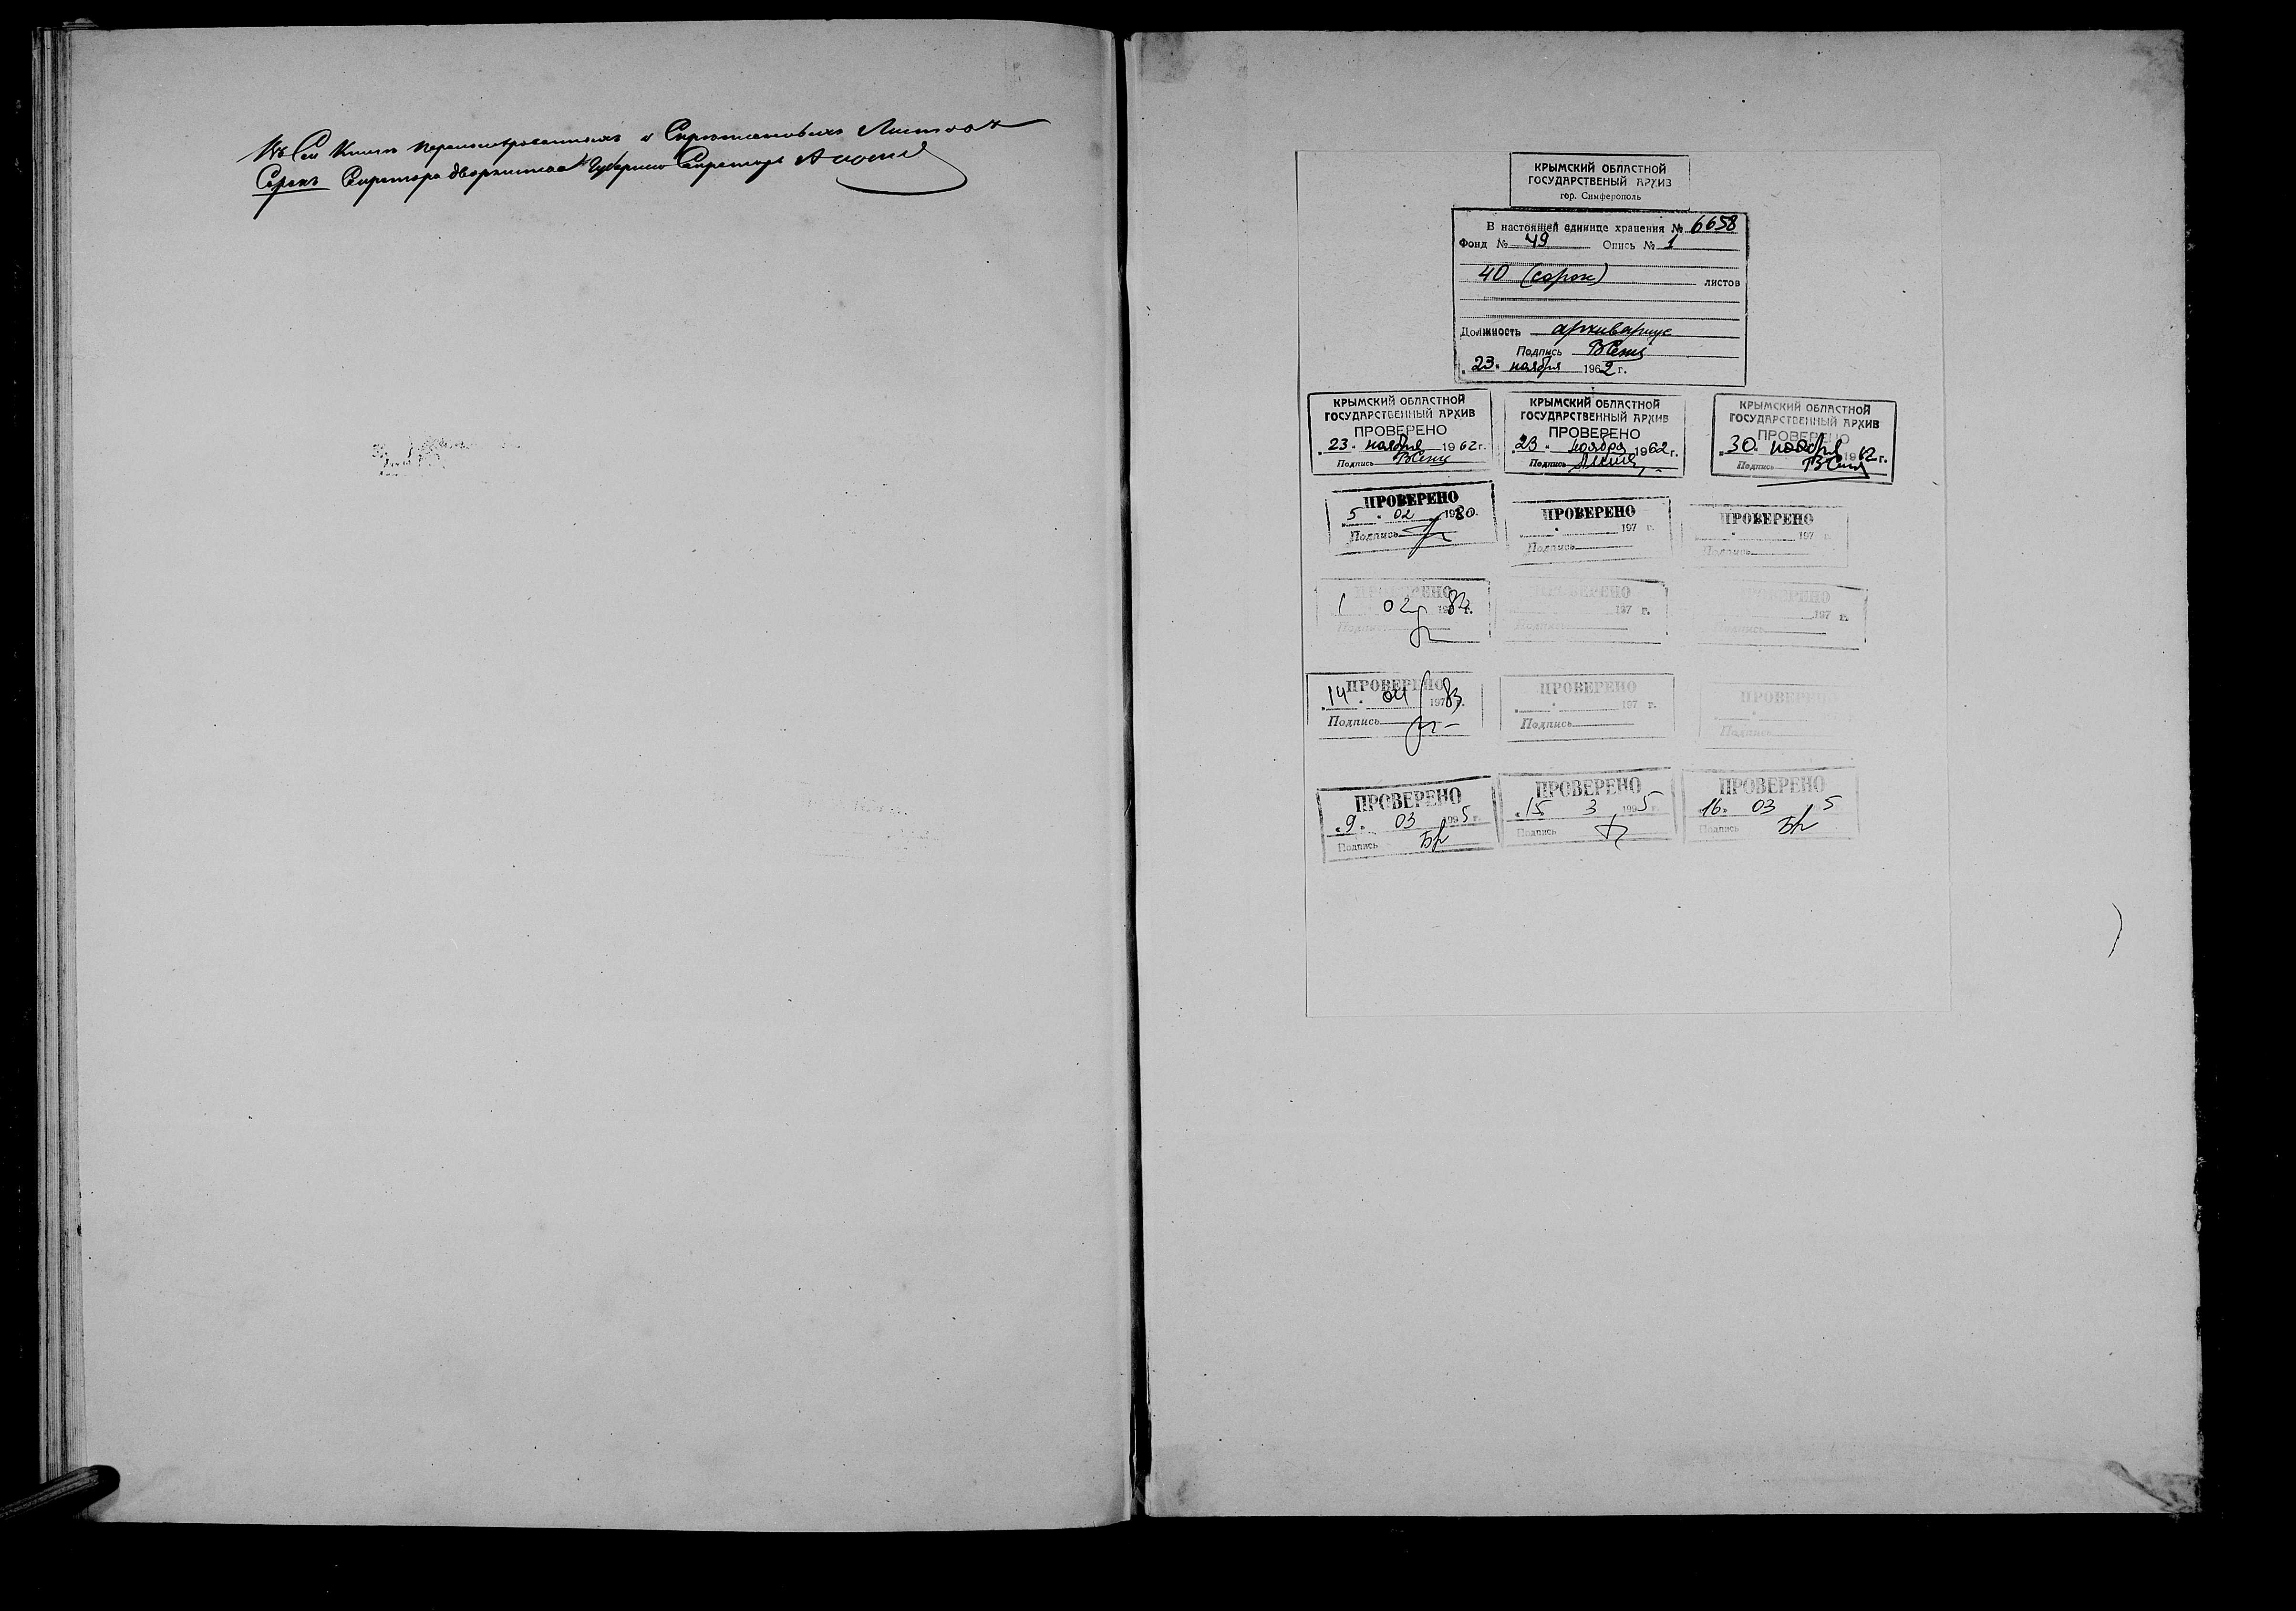 Въ Сей Книгѣ перенумерованныхъ и Скрѣпленныхъ Листовъ
Сорокъ Секретарь дворянства Губернскій Секретарь
КРЫМСКИЙ ОБЛАСТНОЙ
ГОСУДАРСТВЕНЫЙ АРХИЗ
гор. Симферополь
В настоящей единице хранения № 6658
Фонд № 49 Опись № 1
40 (сорок) листов
Должность архивариус
Подпись
23 ноября 1962 г.
КРЫМСКИЙ ОБЛАСТНОЙ
ГОСУДАРСТВЕННЫЙ АРХИВ
ПРОВЕРЕНО
23 ноября 1962 г.
Подпись
КРЫМСКИЙ ОБЛАСТНОЙ
ГОСУДАРСТВЕННЫЙ АРХИВ
ПРОВЕРЕНО
23 ноября 1962 г.
Подпись
КРЫМСКИЙ ОБЛАСТНОЙ
ГОСУДАРСТВЕННЫЙ АРХИВ
ПРОВЕРЕНО
30 ноября 1962 г.
Подпись
ПРОВЕРЕНО
5 02 1980
Подпись
ПРОВЕРЕНО
197 г.
Подпись
ПРОВЕРЕНО
197 г.
Подпись
ПРОВЕРЕНО
1 02 82 г.
Подпись
ПРОВЕРЕНО
197 г.
Подпись
ПРОВЕРЕНО
197 г.
Подпись
ПРОВЕРЕНО
14 04 83 г.
Подпись
ПРОВЕРЕНО
197 г.
Подпись
ПРОВЕРЕНО
Подпись
ПРОВЕРЕНО
9 03 1995 г.
Подпись
ПРОВЕРЕНО
15 3 1995 г.
Подпись
ПРОВЕРЕНО
16 03 5
Подпись